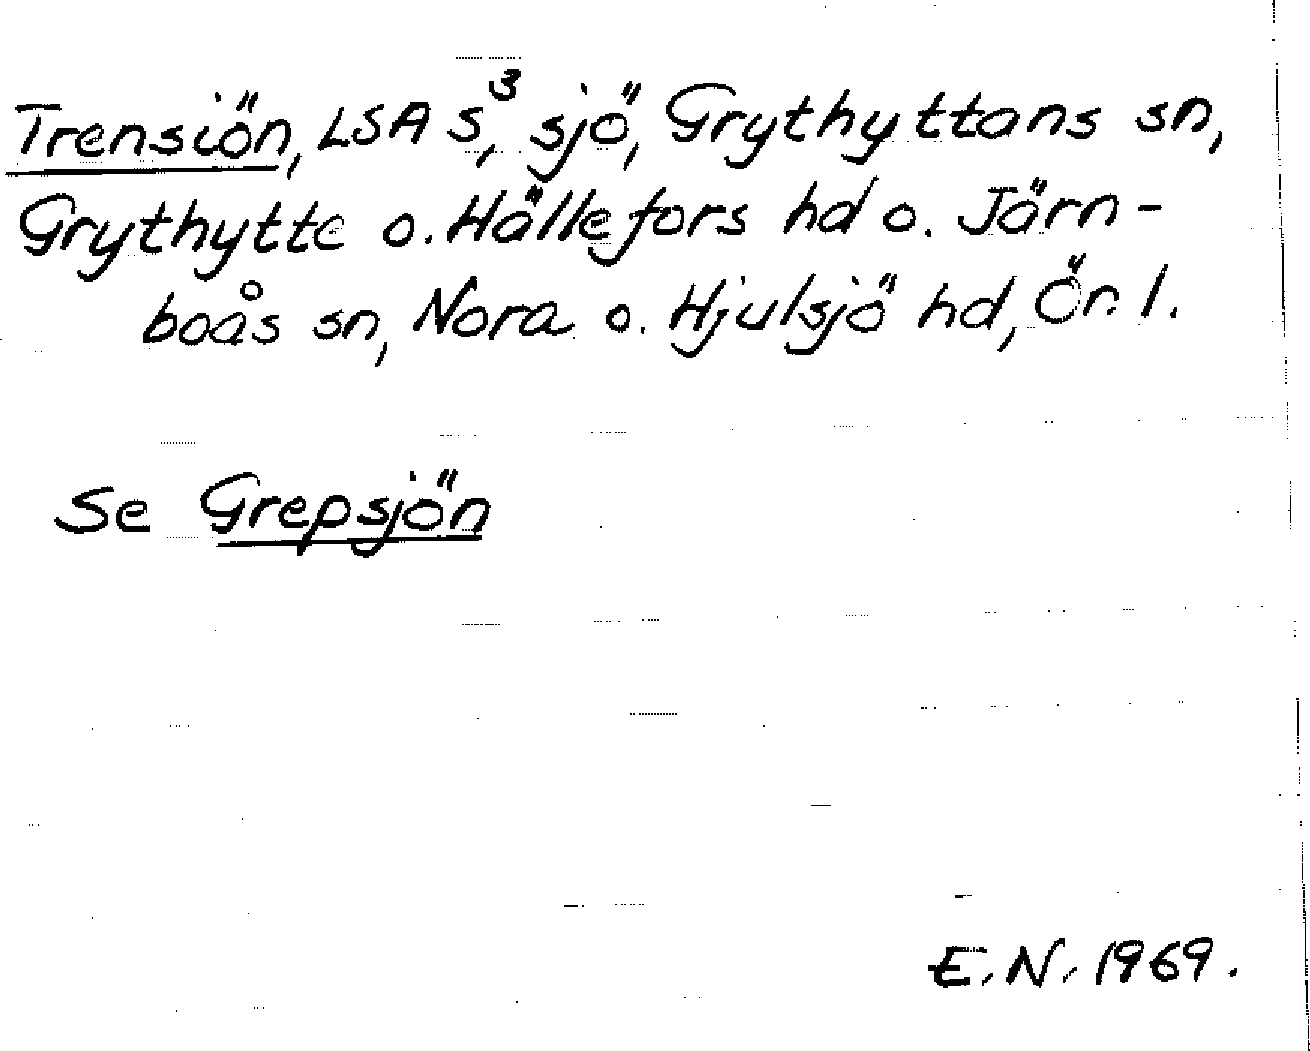 Trensiön, LSA S³, sjö, Grythyttans sn,
Grythytte o. Hällefors hd o. Järn-
boås sn, Nora o. Hjulsjö hd, Ör. l.
Se Grepsjön
E.N. 1969.